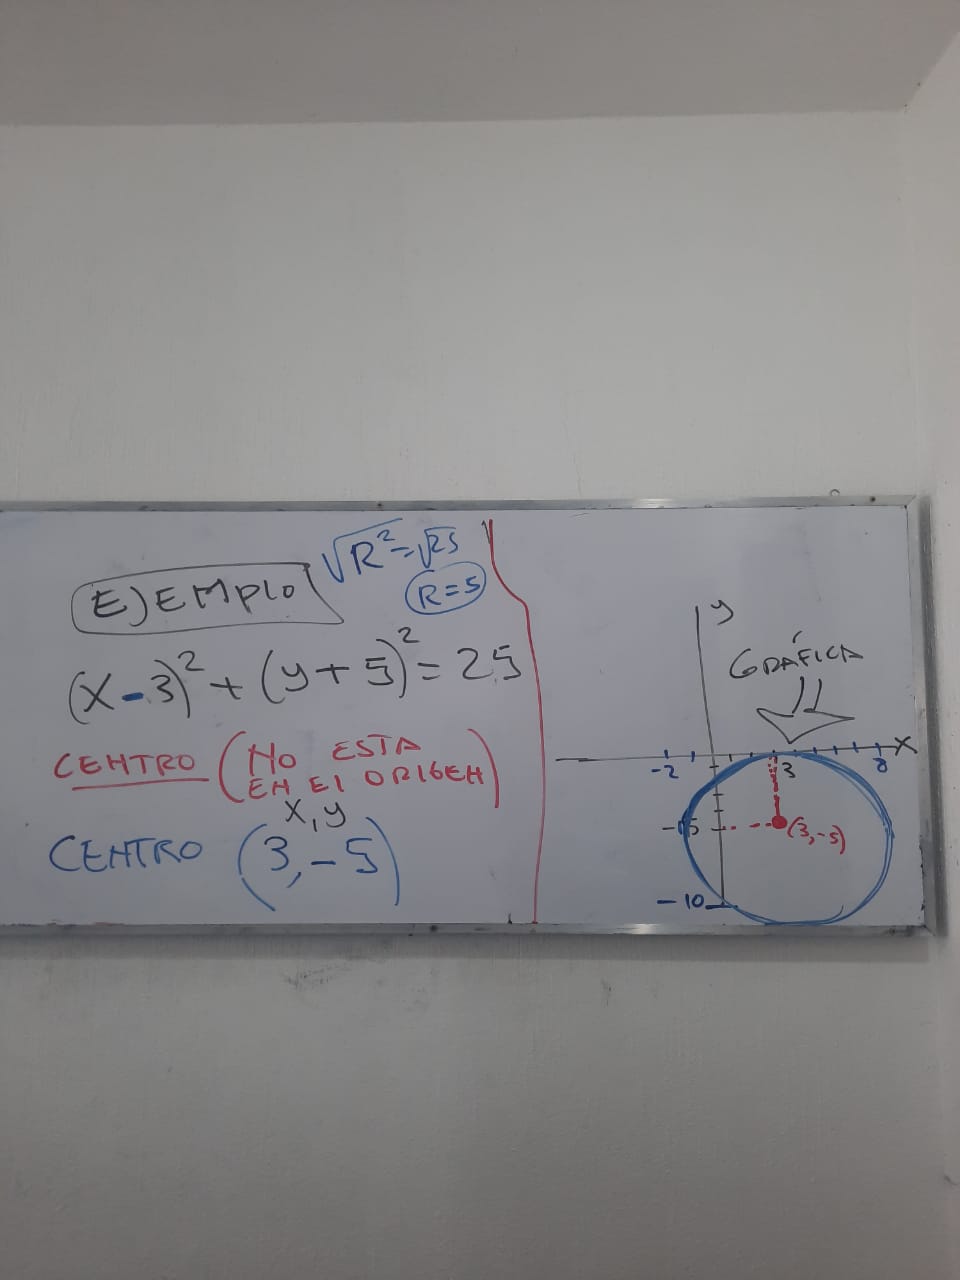 EJEMPLO
√R² = √25
R=5
(x-3)² + (y+5)² = 25
CENTRO (NO ESTA
EN El ORIGEN)
x, y
CENTRO (3, -5)
y
GRÁFICA
x
-2
3
8
(3,-5)
-10